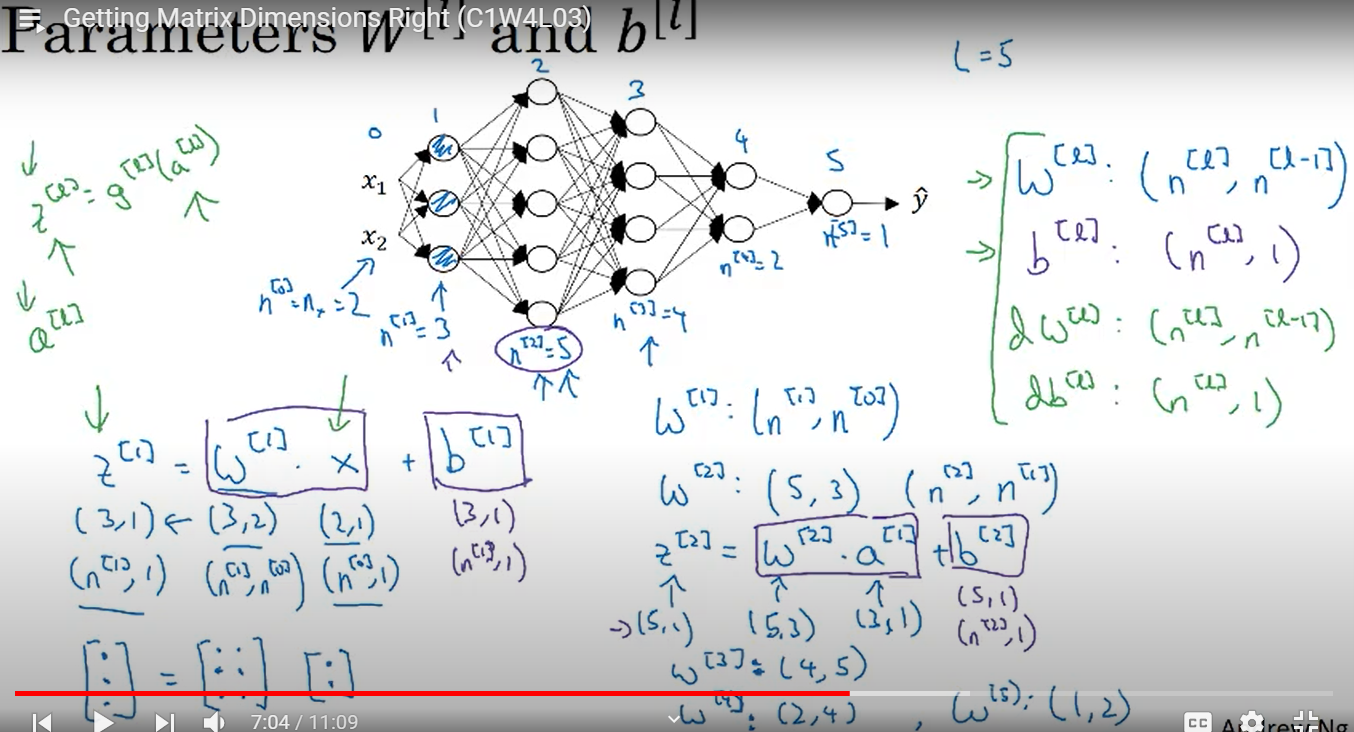 Getting Matrix Dimensions Right (C1W4L03)
Parameters W^[l] and b^[l]
L = 5
0 1 2 3 4 5
z^[l] = g^[l](a^[l])
a^[l]
x₁
x₂
ŷ
n^[0] = n_x = 2
n^[1] = 3
n^[2] = 5
n^[3] = 4
n^[4] = 2
n^[5] = 1
W^[l] : (n^[l], n^[l-1])
b^[l] : (n^[l], 1)
dW^[l] : (n^[l], n^[l-1])
db^[l] : (n^[l], 1)
z^[1] = W^[1] · x + b^[1]
(3,1) ← (3,2) (2,1) (3,1)
(n^[1], 1) (n^[1], n^[0]) (n^[0], 1) (n^[1], 1)
W^[1] : (n^[1], n^[0])
W^[2] : (5, 3) (n^[2], n^[1])
z^[2] = W^[2] · a^[1] + b^[2]
→ (5,1) (5,3) (3,1) (5,1)
(n^[2], 1)
W^[3] : (4, 5)
W^[4] : (2,4) , W^[5] : (1,2)
7:04 / 11:09
CC
Andrew Ng